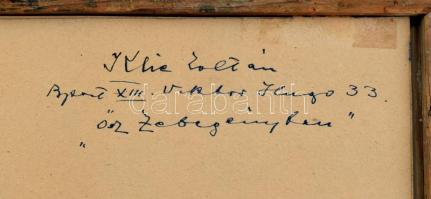 Klie Zoltán
Bpest XIII. Viktor Hugo 33.
"Ősz Zebegényben"
darabanth